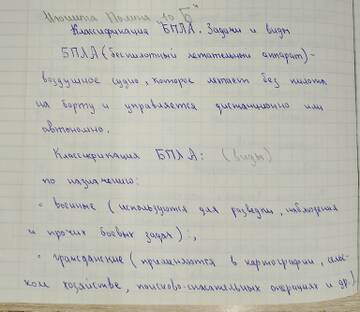 Никита Полина 10 "Б"
Классификация БПЛА. Задачи и виды
БПЛА (беспилотный летательный аппарат) -
воздушное судно, которое летает без пилота
на борту и управляется дистанционно или
автономно.
Классификация БПЛА: (виды)
по назначению:
• военные (используются для разведки, наблюдения
и прочих боевых задач);
• гражданские (применяются в картографии, сельс-
ком хозяйстве, поисково-спасательных операциях и др.)